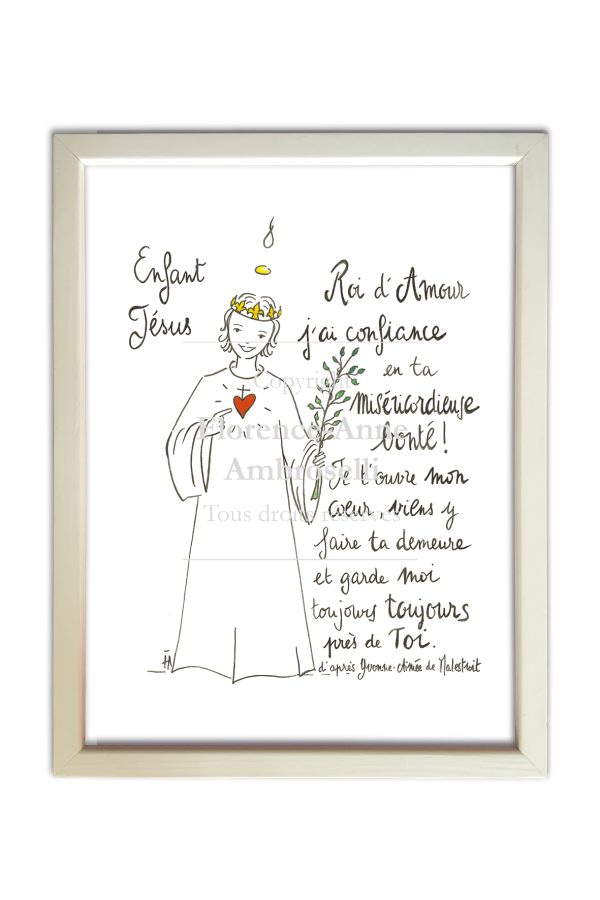 Enfant
Jésus
Roi d'Amour
j'ai confiance
en ta
miséricordieuse
bonté !
Je t'ouvre mon
cœur, viens y
faire ta demeure
et garde moi
toujours toujours
près de Toi.
d'après Yvonne-Aimée de Malestroit
Copyright
Florence-Anne
Ambroselli
Tous droits réservés